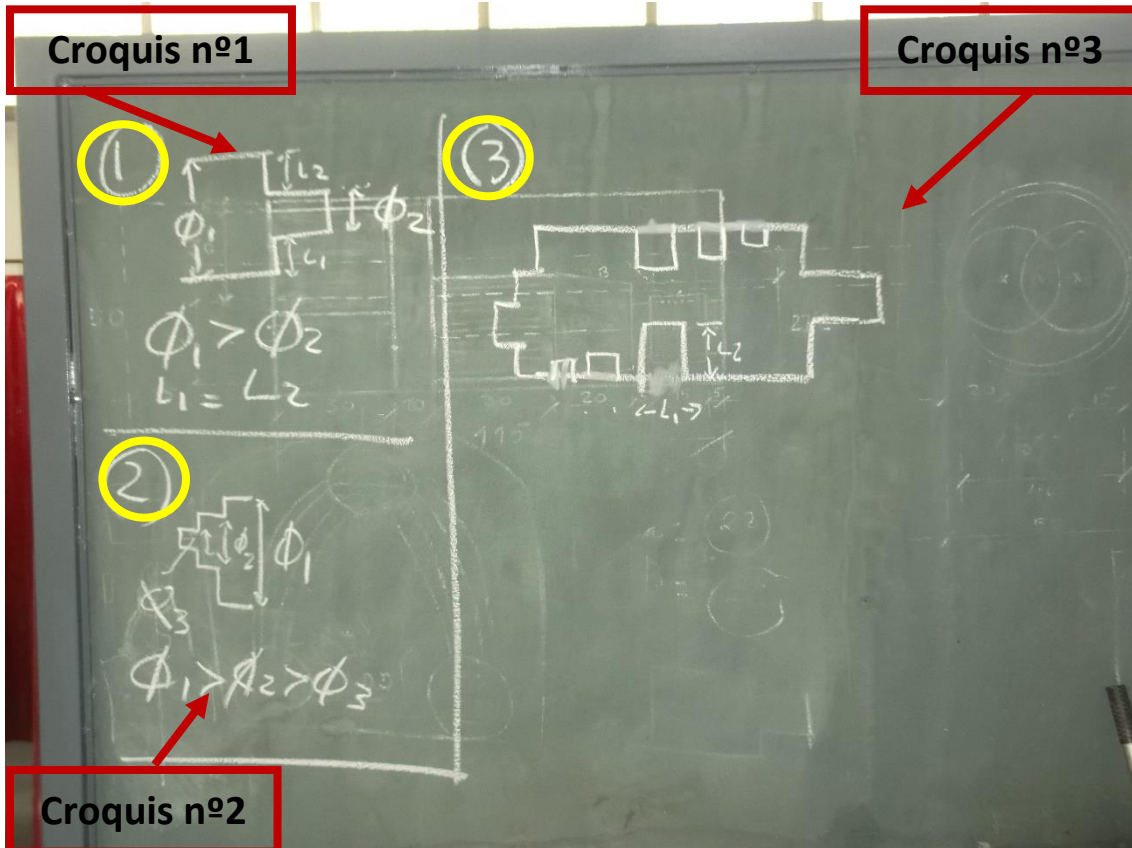 Croquis nº1
Croquis nº3
1
L2
ϕ1
ϕ2
L1
ϕ1 > ϕ2
L1 = L2
3
B
L2
27
50
30
20
<-L1->
115
30
15
2
ϕ2
ϕ1
ϕ3
ϕ1 > ϕ2 > ϕ3
Croquis nº2